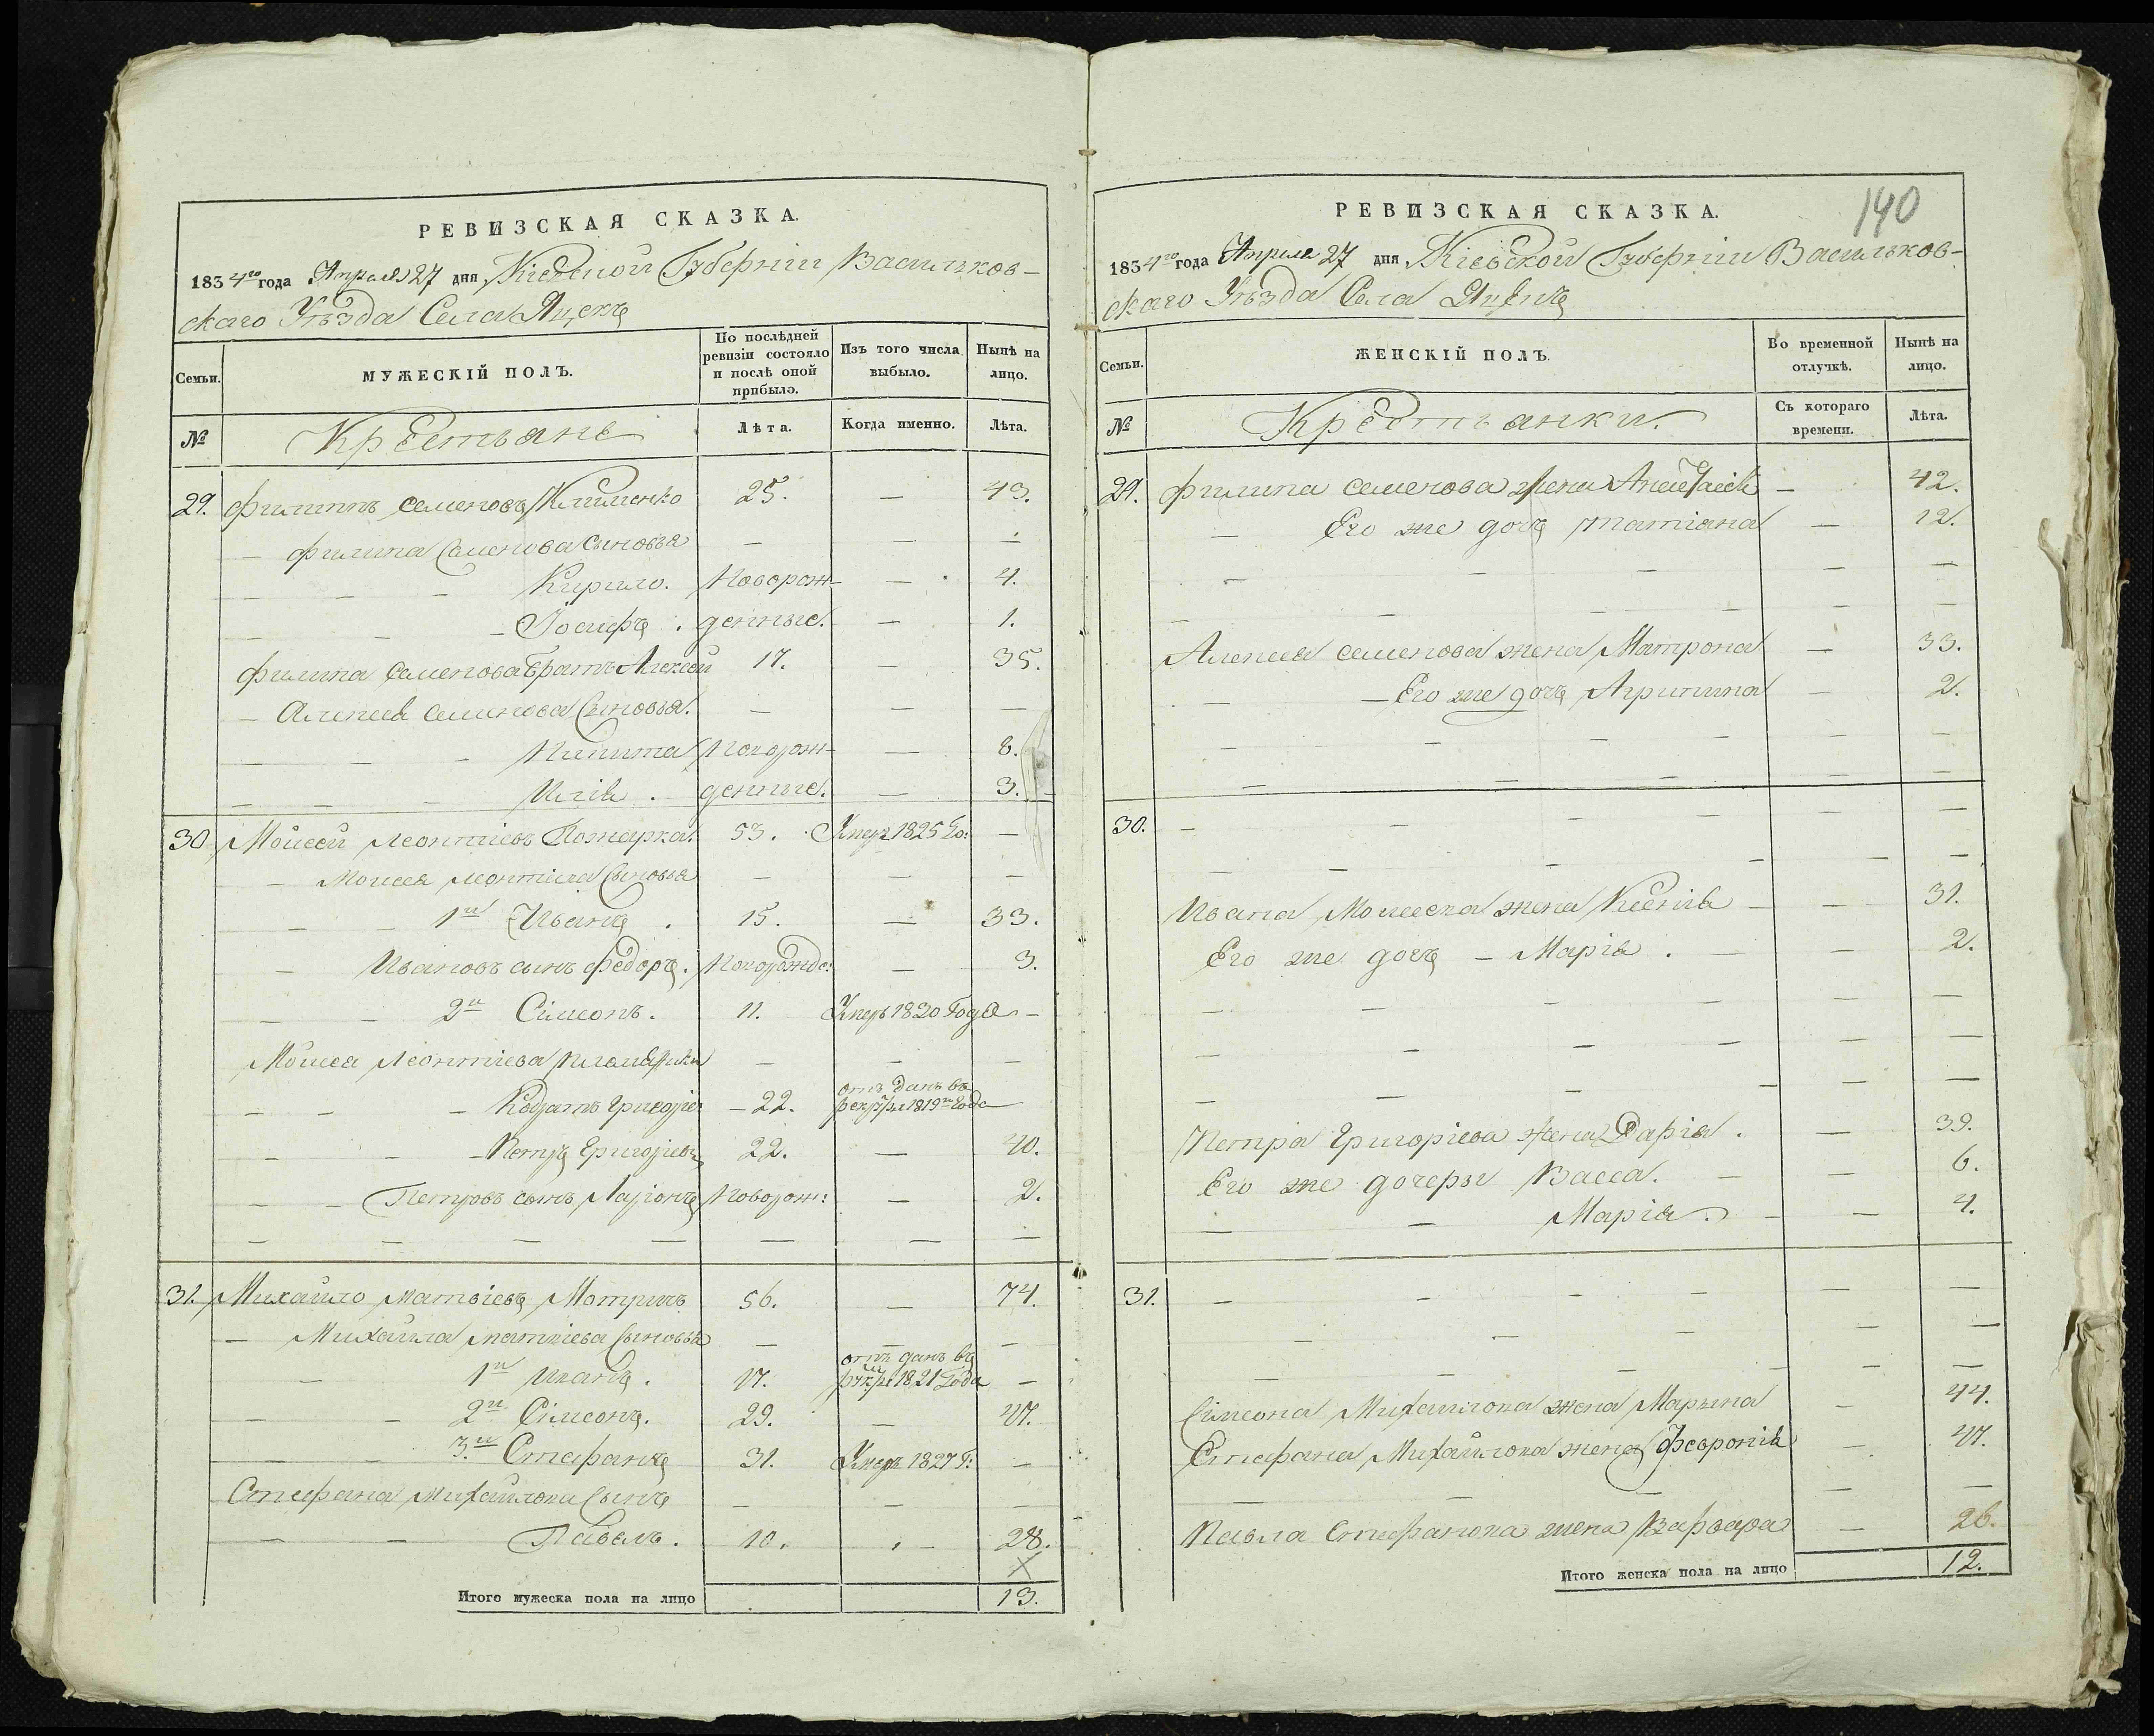 РЕВИЗСКАЯ СКАЗКА.
1834го года Апреля 27 дня Кіевской Губерніи Васильков-
скаго Уѣзда Села Яцекъ
Семьи.
МУЖЕСКІЙ ПОЛЪ.
По послѣдней ревизіи состояло и послѣ оной прибыло.
Изъ того числа выбыло.
Нынѣ на лицо.
№ Крестьяне Лѣта. Когда именно. Лѣта.
29. Филиппъ Семеновъ Клименко 25. — 43.
— Филипа Семенова Сыновья — — —
— — — Кирило. Новорож- — 4.
— — — Іосифъ. денные. — 1.
Филипа Семенова братъ Алексей 17. — 35.
— Алексея Семенова Сыновья. — — —
— — — Никита Новорож- — 8.
— — — Илія. денные. — 3.
30 Мойсей Леонтіевъ 53. Умеръ 1825 Го: —
— — Моисея Леонтіева Сыновья — — —
— — — 1й Иванъ. 15. — 33.
— Ивановъ сынъ Федоръ. Новорожде: — 3.
— — 2й Сімеонъ. 11. Умеръ 1830 Года —
Мойсея Леонтіева племянники — — —
— — — Кодратъ Григорье: — 22. отъ данъ въ рекруты 1819го Года
— — — Петръ Григорьевъ 22. — 40.
— — Петровъ сынъ Ларіонъ Новорож: — 2.
— — — — — — —
31. Михайло Матвіевъ 56. — 74.
— Михайла Матвіева Сыновья — — —
— 1й Иванъ. 17. отъ данъ въ 1821 Года —
— — 2й Сімеонъ. 29. — 47.
— — 3й Стефанъ 31. Умеръ 1827 Г: —
Стефана Михайлова Сынъ — — —
— — Павелъ. 10. — 28.
Итого мужеска пола на лицо 13.
140
РЕВИЗСКАЯ СКАЗКА.
1834го года Апреля 27 дня Кіевской Губерніи Васильков-
скаго Уѣзда Села Яцекъ
Семьи.
ЖЕНСКІЙ ПОЛЪ.
Во временной отлучкѣ.
Нынѣ на лицо.
№ Крестьянки. Съ котораго времени. Лѣта.
29. Филипа Семенова жена — 42.
— Его же дочъ Татіана — 12.
— — — — —
— — — — —
Алексея Семенова жена Матрона — 33.
— — Его же дочъ Агрипина — 2.
— — — — — —
— — — — —
30. — — — — — —
— — — — — —
Ивана Моисеева жена Ксенія — — 31.
Его же дочъ — Марія. — — 2.
— — — —
— — — — — —
— — — — — —
Петра Григоріева жена Дарія. — 39.
Его же дочеры Васса. — — 6.
— — Марія. — — 4.
31. — — — — — —
— — — — —
— — — — —
Сімеона Михайлова жена Марына — 44.
Стефана Михайлова жена Февронія — 47.
— — — — —
Павла Стефанова жена Варвара — 26.
Итого женска пола на лицо 12.